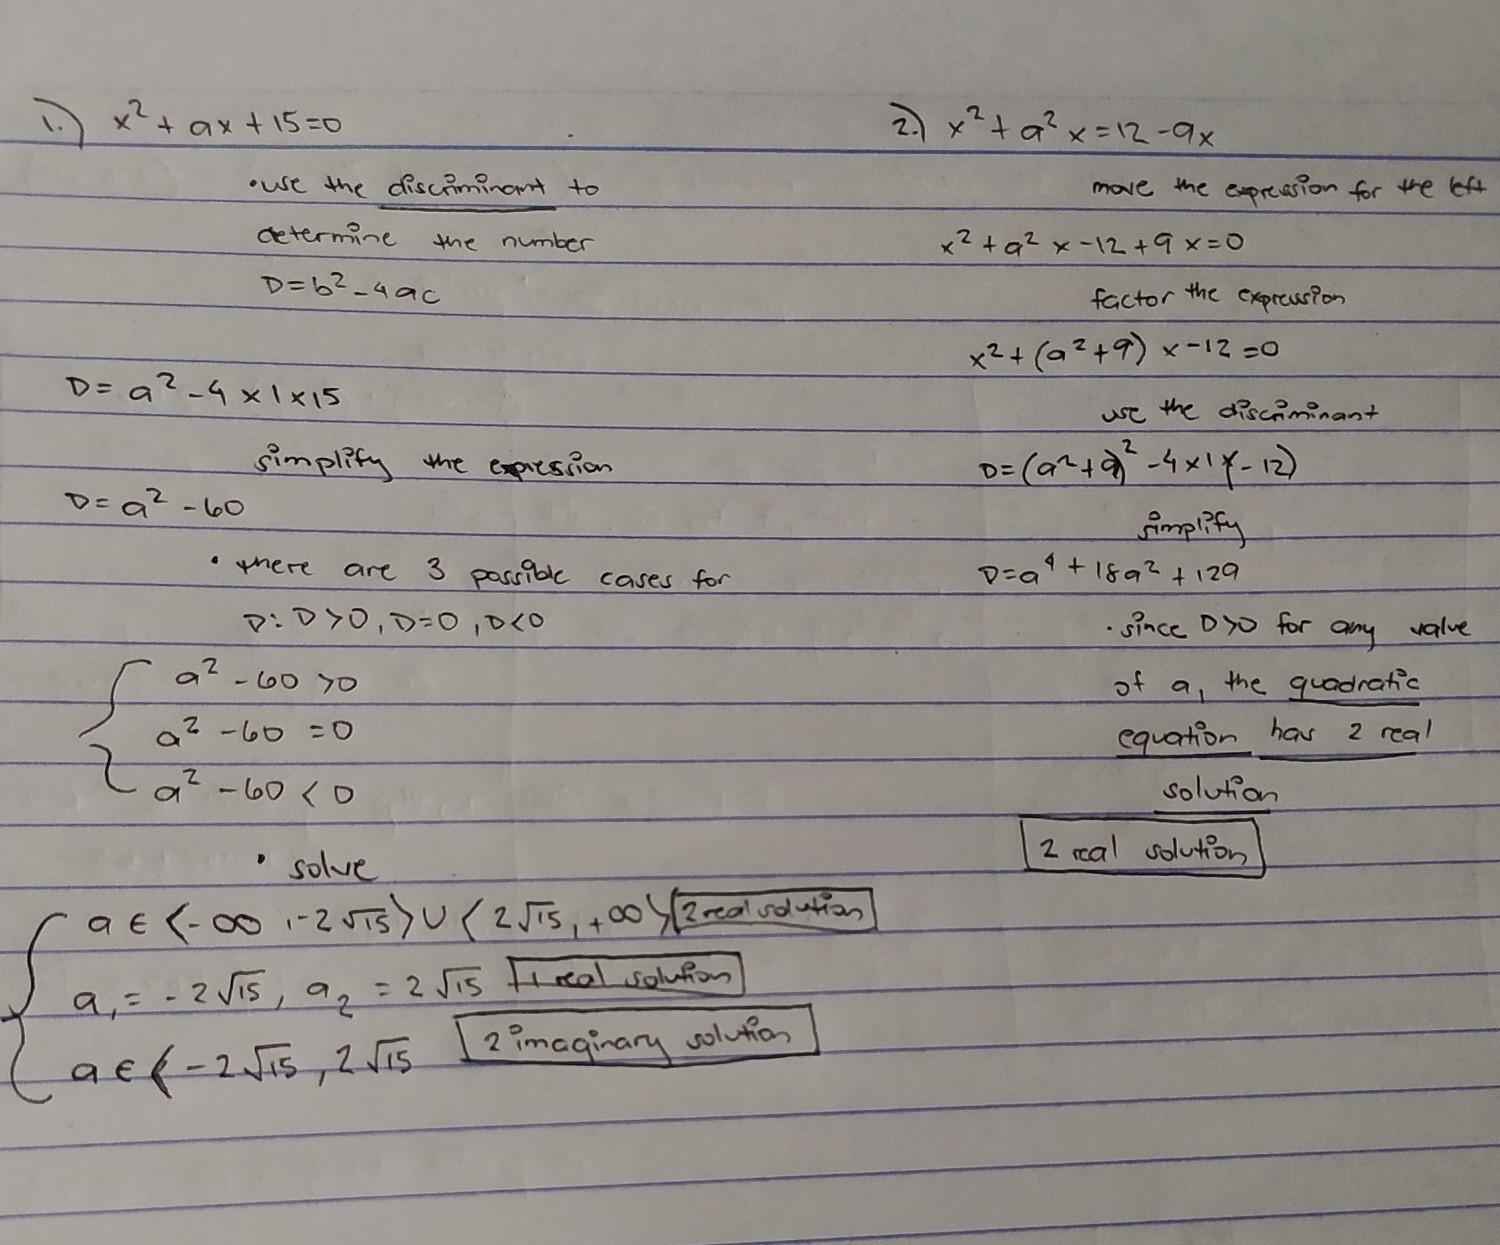 1.) x² + ax + 15 = 0
• use the discriminant to
determine the number
D = b² - 4ac
D = a² - 4 × 1 × 15
simplify the expression
D = a² - 60
• there are 3 possible cases for
D: D > 0, D = 0, D < 0
a² - 60 > 0
a² - 60 = 0
a² - 60 < 0
• solve
a ∈ ⟨-∞, -2√15⟩ ∪ ⟨2√15, +∞⟩ 2 real solution
a₁ = -2√15, a₂ = 2√15 1 real solution
a ∈ ⟨-2√15, 2√15 2 imaginary solution
2.) x² + a² x = 12 - 9x
move the expression for the left
x² + a² x - 12 + 9x = 0
factor the expression
x² + (a² + 9) x - 12 = 0
use the discriminant
D = (a² + 9)² - 4 × 1 × (-12)
simplify
D = a⁴ + 18a² + 129
• since D > 0 for any value
of a, the quadratic
equation has 2 real
solution
2 real solution